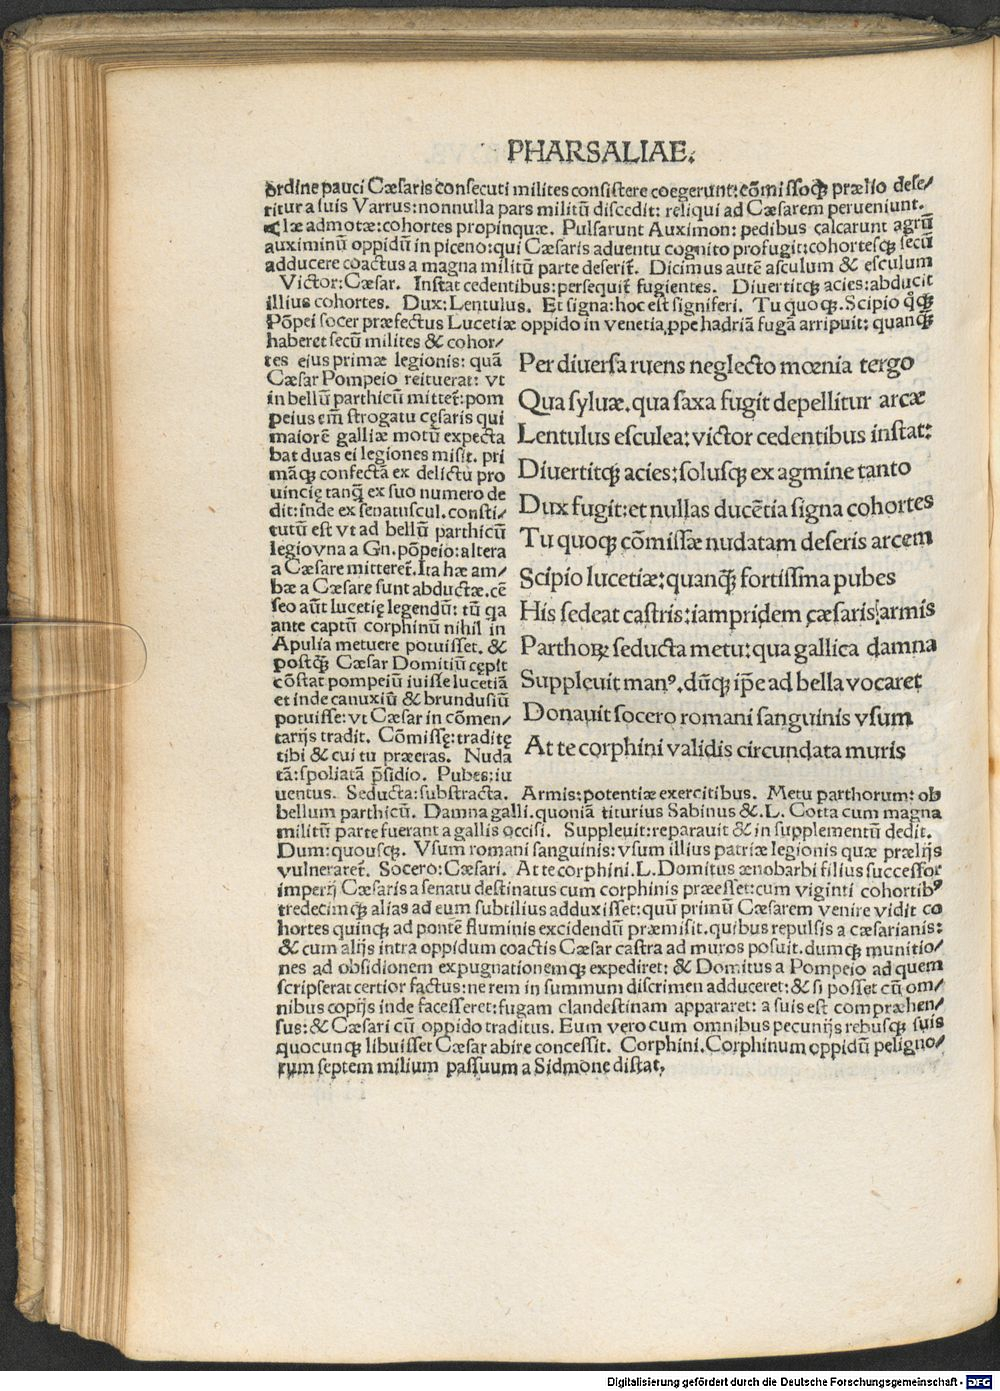 PHARSALIAE.
ordine pauci Cæsaris consecuti milites consistere coegerunt: cõmissoq; prælio dese/
ritur a suis Varrus: nonnulla pars militũ discedit: reliqui ad Cæsarem perueniunt.
læ admotæ: cohortes propinquæ. Pulsarunt Auximon: pedibus calcarunt agrũ
auximinũ oppidũ in piceno: qui Cæsaris aduentu cognito profugit: cohortesq; secũ
adducere coactus a magna militũ parte deserit̃. Dicimus autẽ asculum & esculum
Victor: Cæsar. Instat cedentibus: persequit̃ fugientes. Diuertitq; acies: abducit
illius cohortes. Dux: Lentulus. Et signa: hoc est signiferi. Tu quoq;. Scipio q̃q;
Põpei socer præfectus Lucetiæ oppido in venetia, ppe hadriã fugã arripuit: quanq̃
haberet secũ milites & cohor/
tes eius primæ legionis: quã
Cæsar Pompeio reituerat: vt
in bellũ parthicũ mittet̃: pom
peius em̃ strogatu cęsaris qui
maiorẽ galliæ motũ expecta
bat duas ei legiones misit. pri
mãq; confectã ex delictu pro
uincię tanq̃ ex suo numero de
dit: inde ex senatuscul. consti/
tutũ est vt ad bellũ parthicũ
legio vna a Gn. põpeio: altera
a Cæsare mitteret̃. Ita hæ am/
bæ a Cæsare sunt abductæ. cẽ
seo aũt lucetię legendũ: tũ qa
ante captũ corphinũ nihil in
Apulia metuere potuisset. &
postq̃ Cæsar Domitiũ cępit
cõstat pompeiũ iuisse lucetiã
et inde canuxiũ & brundusiũ
potuisse: vt Cæsar in cõmen/
tarijs tradit. Cõmissę: traditę
tibi & cui tu præeras. Nuda
tã: spoliatã p̃sidio. Pubes: iu
Per diuersa ruens neglecto mœnia tergo
Qua syluæ. qua saxa fugit depellitur arcæ
Lentulus esculea: victor cedentibus instat:
Diuertitq; acies: solusq; ex agmine tanto
Dux fugit: et nullas ducẽtia signa cohortes
Tu quoq; cõmissæ nudatam deseris arcem
Scipio lucetiæ: quanq̃ fortissima pubes
His sedeat castris: iampridem cæsaris armis
Parthoꝝ seducta metu: qua gallica damna
Suppleuit manꝰ. dũq; ip̃e ad bella vocaret
Donauit socero romani sanguinis vsum
At te corphini validis circundata muris
uentus. Seducta: substracta. Armis: potentiæ exercitibus. Metu parthorum: ob
bellum parthicũ. Damna galli. quoniã titurius Sabinus &. L. Cotta cum magna
militũ parte fuerant a gallis occisi. Suppleuit: reparauit & in supplementũ dedit.
Dum: quousq;. Vsum romani sanguinis: vsum illius patriæ legionis quæ prælijs
vulneraret̃. Socero: Cæsari. At te corphini. L. Domitus ænobarbi filius successor
imperij Cæsaris a senatu destinatus cum corphinis præesset: cum viginti cohortibꝰ
tredecimq; alias ad eum subtilius adduxisset: quũ primũ Cæsarem venire vidit co
hortes quinq; ad pontẽ fluminis excidendũ præmisit. quibus repulsis a cæsarianis:
& cum alijs intra oppidum coactis Cæsar castra ad muros posuit. dumq; munitio/
nes ad obsidionem expugnationemq; expediret: & Domitus a Pompeio ad quem
scripserat certior factus: ne rem in summum discrimen adduceret: & si posset cũ om/
nibus copijs inde facesseret: fugam clandestinam appararet: a suis est compræhen/
sus: & Cæsari cũ oppido traditus. Eum vero cum omnibus pecunijs rebusq; suis
quocunq; libuisset Cæsar abire concessit. Corphini. Corphinum oppidũ peligno/
rum septem milium passuum a Sidmone distat,
Digitalisierung gefördert durch die Deutsche Forschungsgemeinschaft - DFG